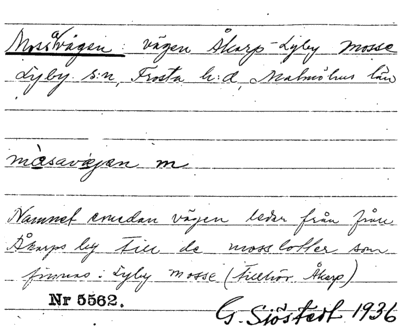 Mossavägen: vägen Åkarp-Lyby mosse
Lyby s:n, Frosta h:d, Malmöhus län
mòsavæjæn m
Namnet emedan vägen leder från
Åkarps by till de mosslotter som
finnas i Lyby mosse (tillhör. Åkarp)
Nr 5562.
G. Sjöstedt 1936